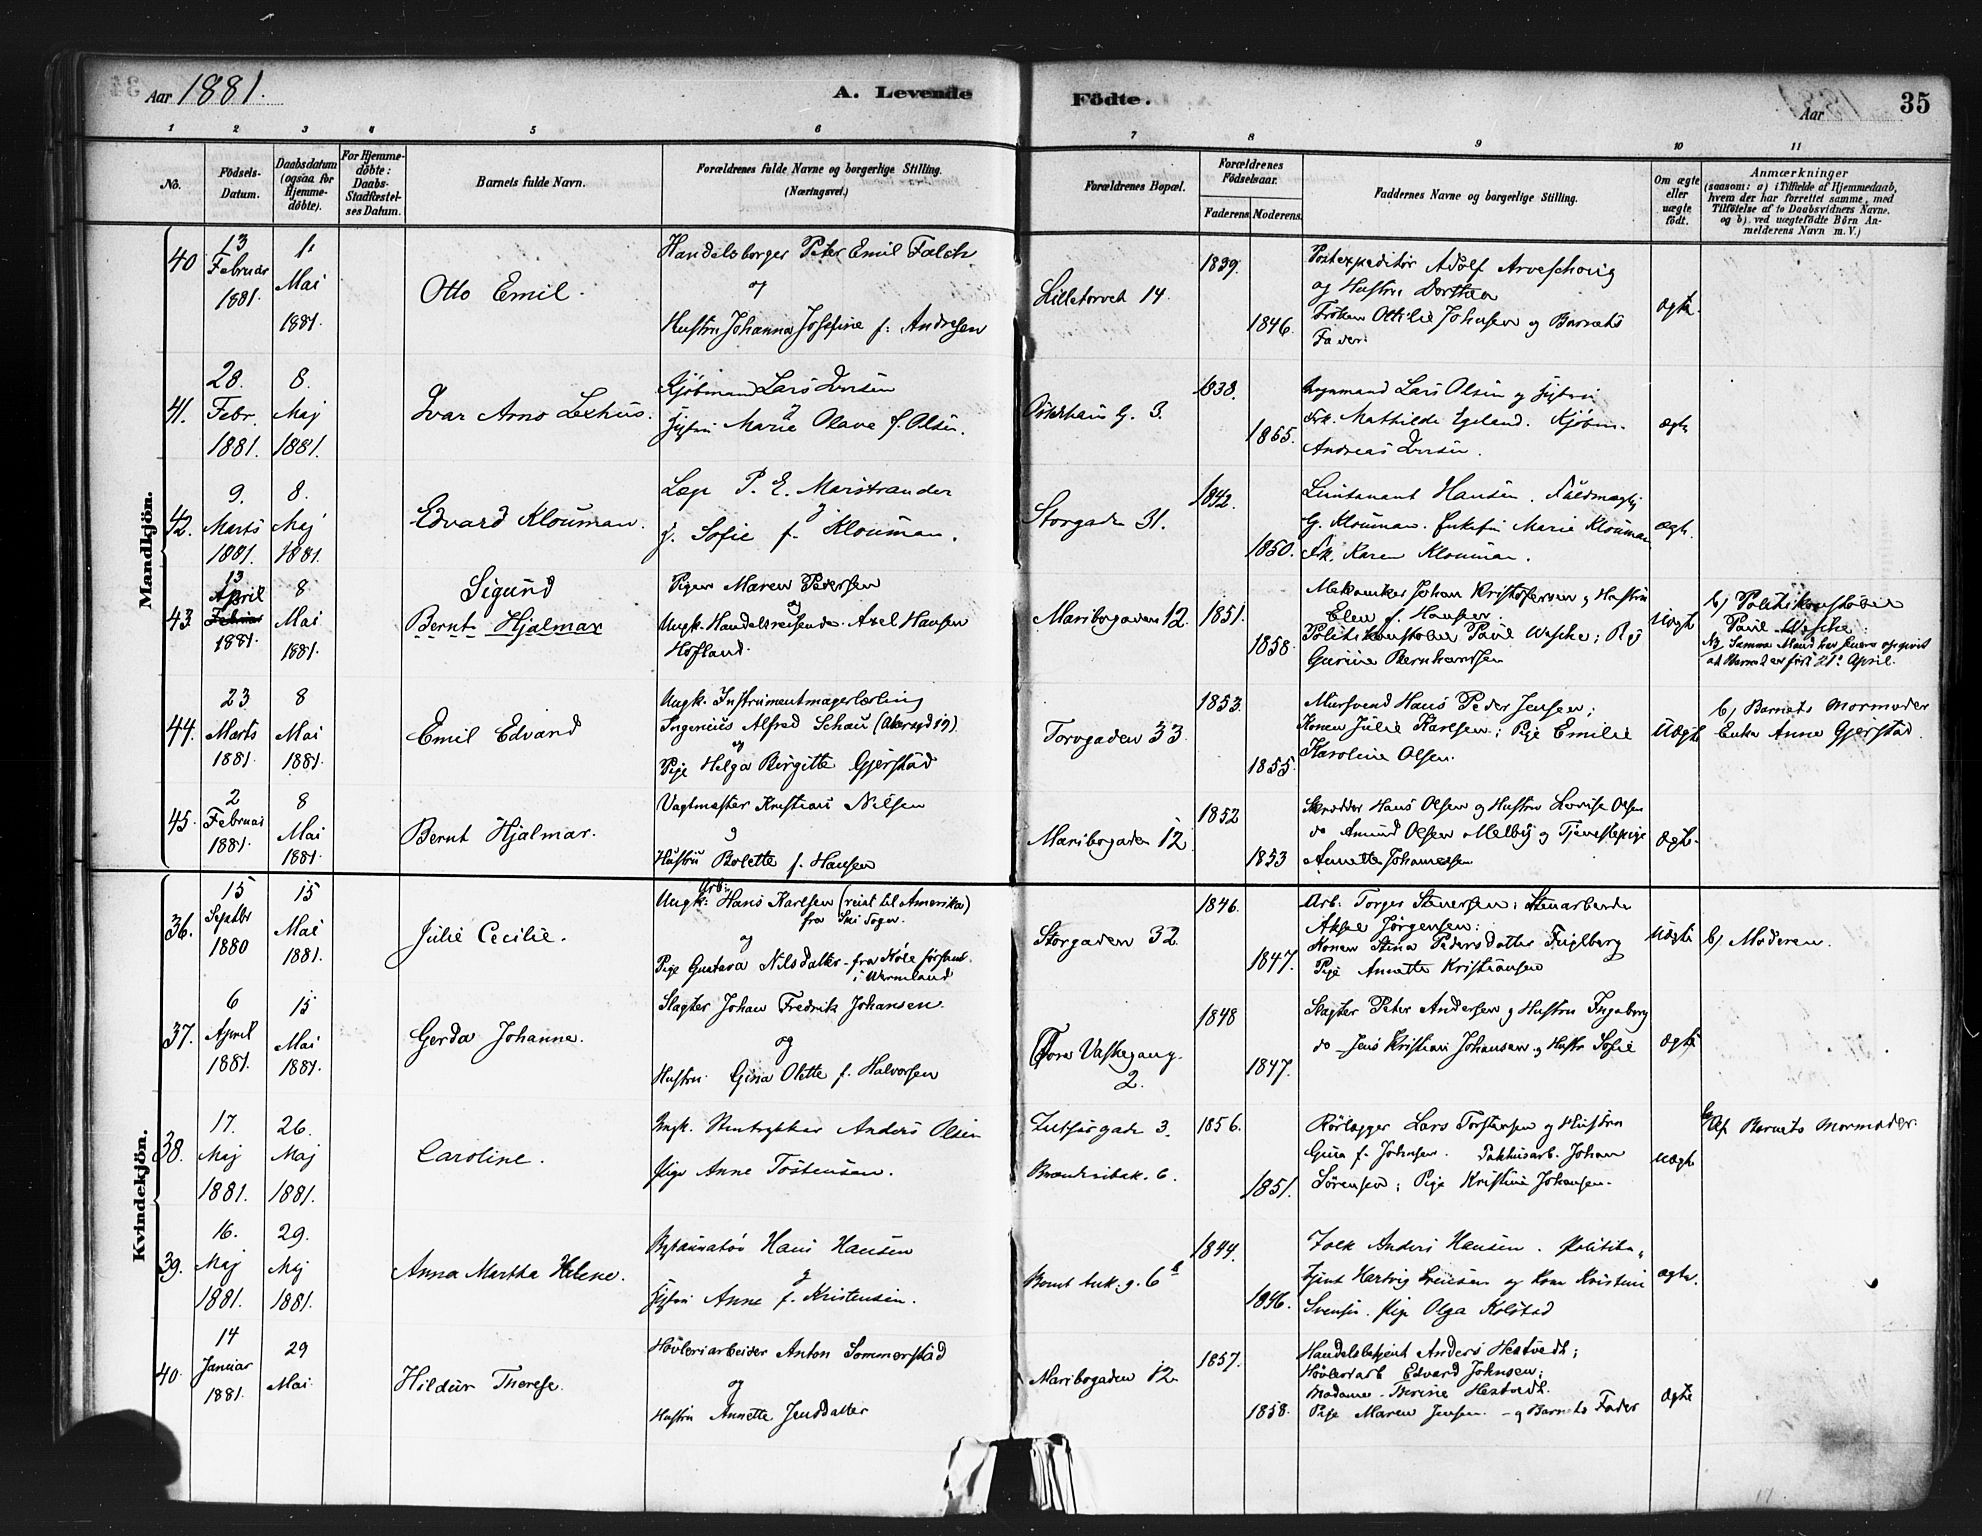 Aar 1881.
A. Levende Födte.
Aar
35
1 2 3 4 5 6 7 8 9 10 11
No.
Födsels-Datum.
Daabsdatum (ogsaa for Hjemme-döbte).
For Hjemme-döbte: Daabs-Stadfæstel-ses Datum.
Barnets fulde Navn.
Forældrenes fulde Navne og borgerlige Stilling. (Næringsvei.)
Forældrenes Bopæl.
Forældrenes Födselsaar.
Faderens. Moderens.
Faddernes Navne og borgerlige Stilling.
Om ægte eller uægte födt.
Anmærkninger
(saasom: a) i Tilfælde af Hjemmedaab, hvem der har forrettet samme, med Tilföielse af to Daabsvidners Navne. og b) ved uægtefödte Börn An-melderens Navn m. V.)
Mandkjön.
40
13 Februar 1881.
1. Mai 1881.
Otto Emil.
Handelsborger Peter Emil Falch
og
Hustru Johanna Josefine f. Andresen
Lilletorvet 14.
1839.
1846.
Postexpeditør Adolf
og Hustru Dorthea
Frøken Ottilie Johnsen og Barnets
Fader.
ægte.
41.
28. Febr. 1881.
8. Maj 1881.
Ivar Arno
Kjøbmand Lars
Hustru Marie Olave f. Olsen.
3.
1838.
1865.
Lars Olsen og Hustru
Frk. Mathilde Egeland. Kjøbm.
Andreas
ægte
42.
9. Marts 1881.
8. Maj 1881.
Edvard Klouman.
Læge P. E. Marstrander
og
H. Sofie f. Klouman.
Storgaden 31.
1842.
1850.
Lieutenant Hansen. Fuldmægtig
G. Klouman. Enkefru Marie Klouman
Frk. Karen Klouman.
ægte.
43
13 April Februar 1881.
8 Mai 1881.
Sigurd
Bernt Hjalmar
Pigen Maren Pedersen
og
Ungk. Handelsreisende Axel Hansen
Hofland.
Maribogaden 12.
1851.
1858.
Mekaniker Johan Kristofersen og Hustru
Elen f. Hansen.
Politikonstabel Paul Wefche; Pige
Gurine Bernhardsen
Uægte
b) Politikonstabel
Paul Wefche.
NB Samme Mand har senere opgivet
at Barnet er født 21. April.
44.
23 Marts 1881.
8 Mai 1881.
Emil Edvard
Ungk. Instrumentmagerlærling
Ingenius Alfred Schau (Akersgd 19)
og
Pige Helga Birgitte Gjerstad
Torvgaden 33
1853.
1855.
Mursvend Hans Peder Jensen;
Konen Julie Karlsen; Pige Emilie
Karoline Olsen.
Uægte
b) Barnets Mormoder
Enke Anne Gjerstad.
45.
2 Februar 1881.
8 Mai 1881.
Bernt Hjalmar.
Vagtmester Kristian Nilsen
og
Hustru Bolette f. Hansen
Maribogaden 12.
1852
1853
Skrædder Hans Olsen og Hustru Lovise Olsen
do Amund Olsen Melby og Tjenestepige
Annette Johannesen
ægte.
Kvindekjön.
36.
15 Septbr 1880
15 Mai 1881.
Julie Cecilie.
Ungk. Arb: Hans Karlsen (reist til Amerika)
fra Ski Sogn.
og
Pige Gustava Nilsdatter fra
i Wermland
Storgaden 32
1846.
1847.
Arb: Torger Steversen; Stenarbeider
Aksel Jørgensen:
Konen Stina Pedersdatter Fuglberg
Pige Annette Kristiansen
Uægte
b) Moderen.
37.
6 April 1881.
15 Mai 1881.
Gerda Johanne.
Slagter Johan Fredrik Johansen.
og
Hustru Gina Olette f. Halvorsen
Fore Vaskegang.
2.
1848
1847.
Slagter Peter Andersen og Hustru Ingeborg
do Jens Kristian Johansen og Hustr Sofie
ægte
38.
17. Maj 1881.
26. Maj 1881.
Caroline.
Ungk. Stentrykker Anders Olsen
Pige Anne Tostensen.
3.
6.
1856.
1851.
Rørlægger Lars Torstensen og Hustru
Gina f. Johnsen. Pakhusarb. Johan
Sørensen; Pige Kristine Johansen.
uægte
b) Af Barnets Mormoder.
39.
16. Maj 1881.
29. Maj 1881.
Anna Martha Helene.
Restauratør Hans Hansen
og
Hustru Anne f. Kristensen.
6
1844.
1846.
Anders Hansen. Politibe-
tjent Hartvig Svensen og Kone Kristine
Svensen. Pige Olga Kolstad
ægte.
40.
14 Januar 1881.
29 Mai
Hildur Therese.
Høvleriarbeider Anton Sommerstad
og
Hustru Annette Jensdatter
Maribogaden 12
1857.
1858.
Handelsbetjent Anders Hestvedt;
Høvleriarb Edvard Johnsen;
Madame Berine Hestvedt.
Pige Maren Jensen. - og Barnets Fader
ægte